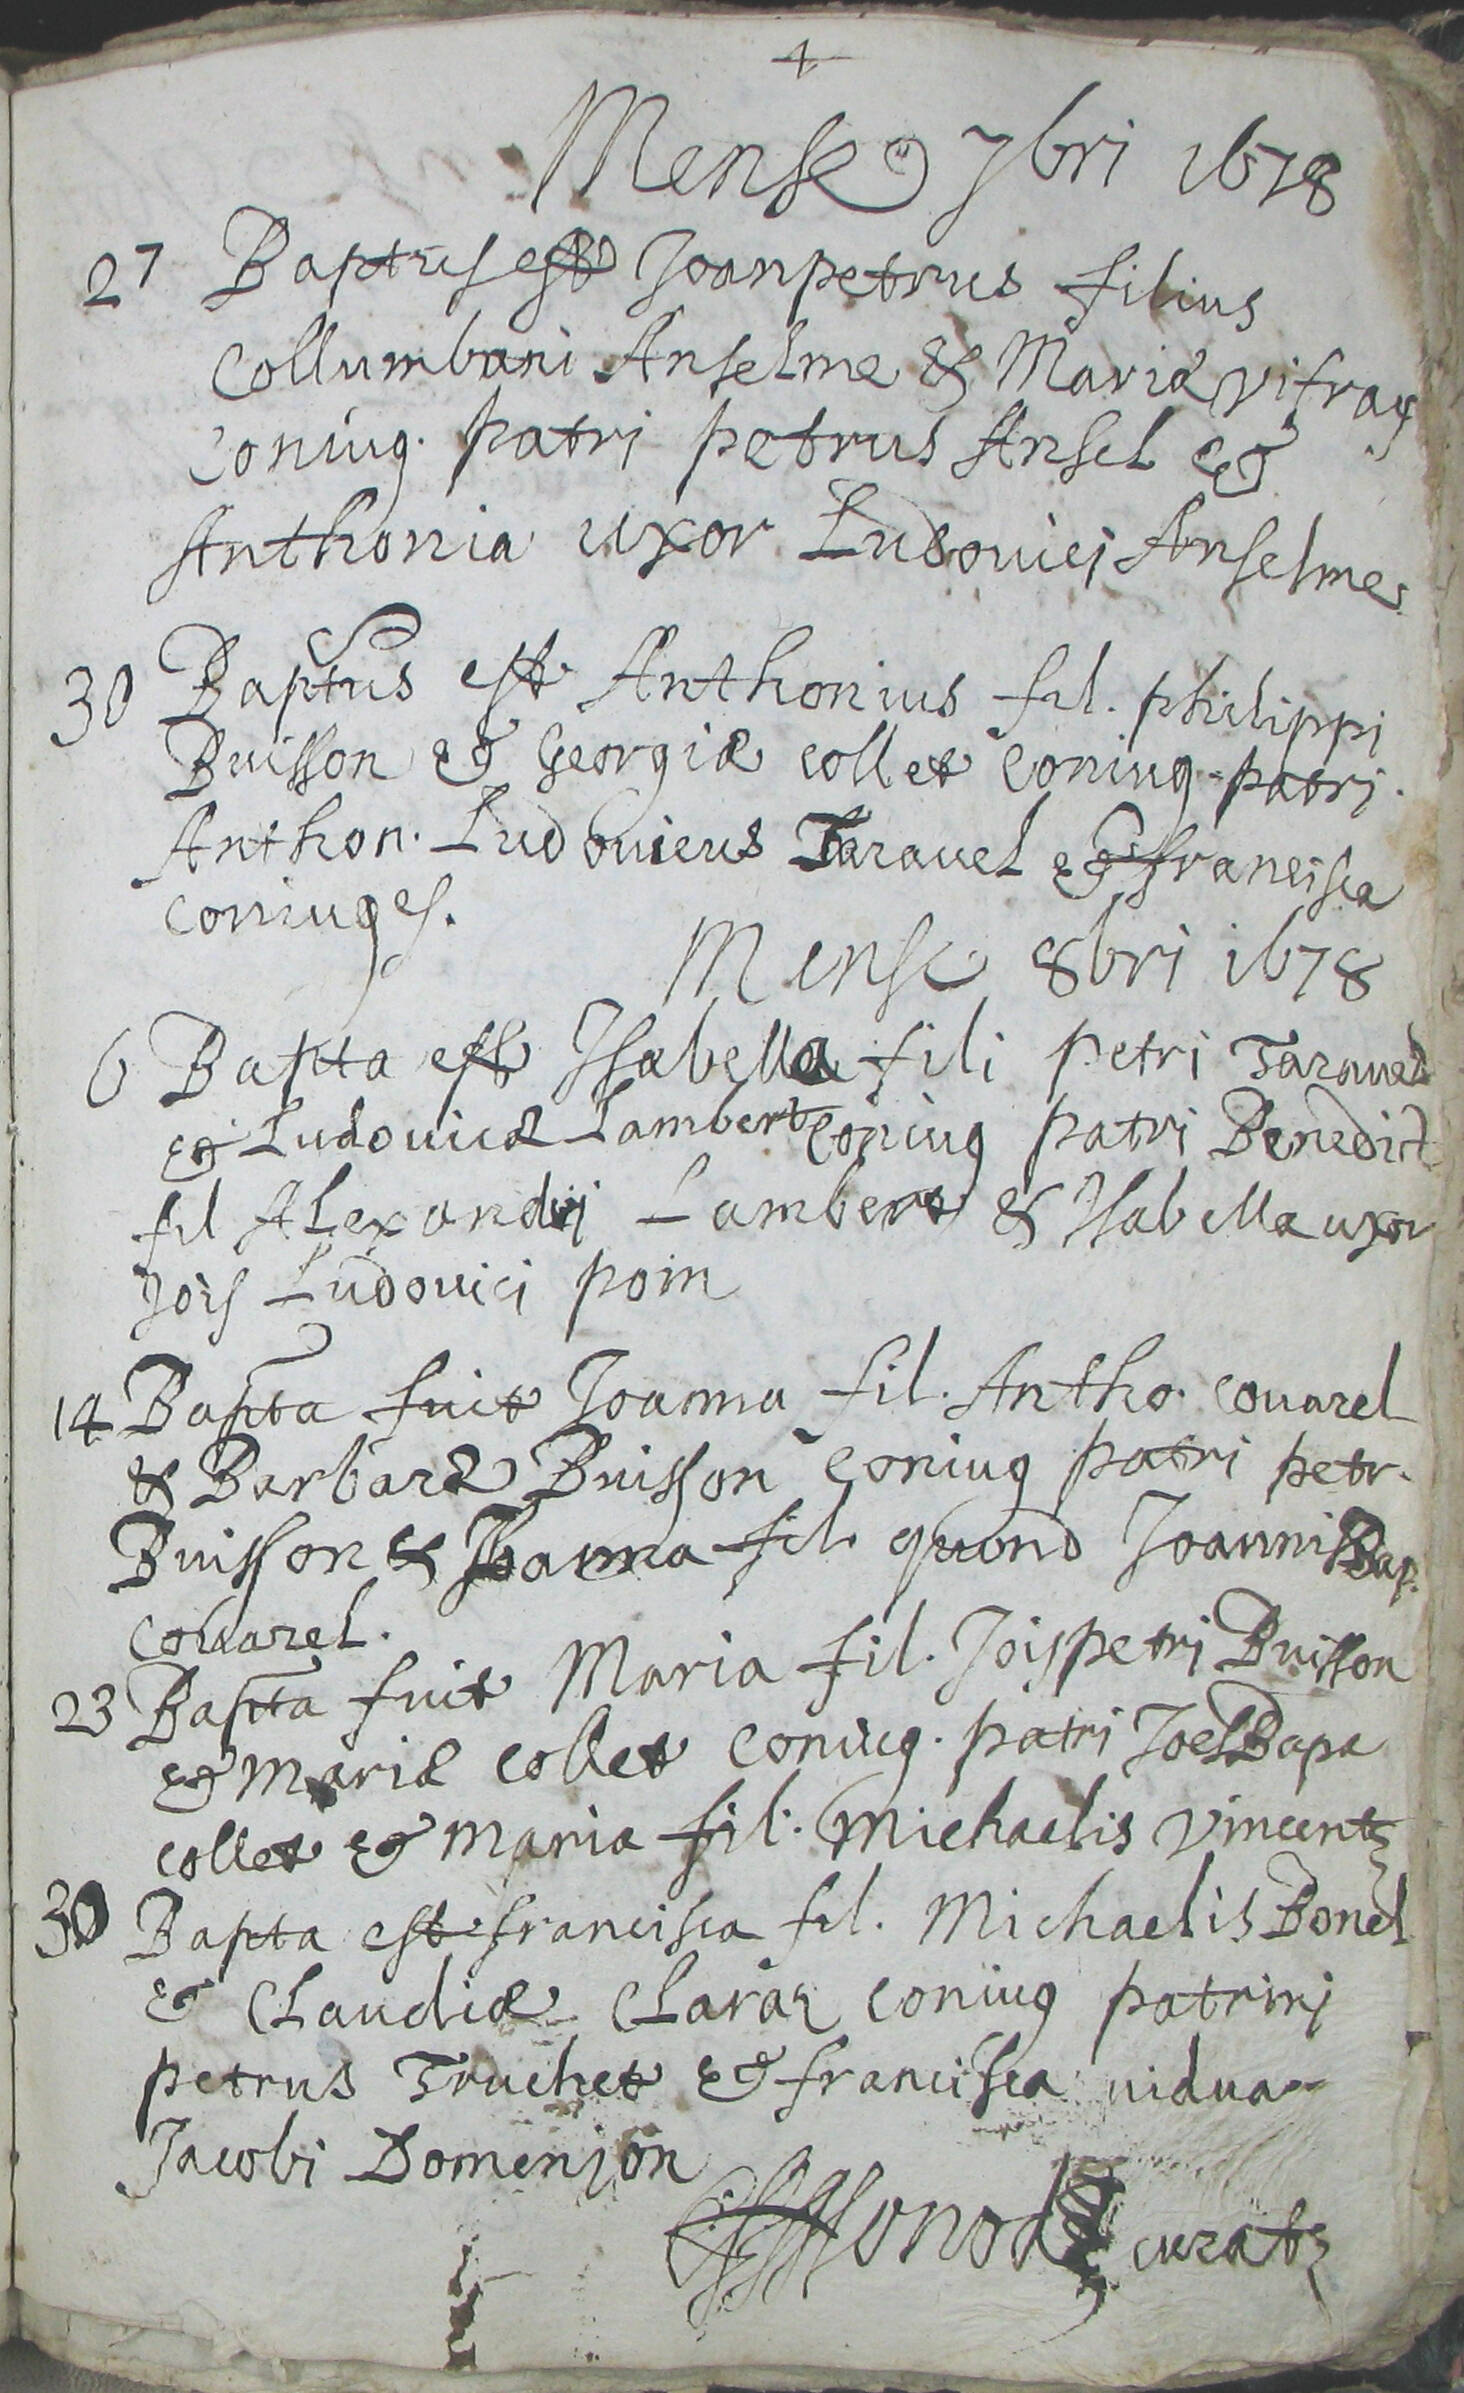 Mense 7bri 1678
27 Baptus est Joanpetrus filius
Collumbani Anselme & Mariæ vifray
coniug. patri petrus Ansel et
Anthonia uxor Ludovici Anselme
30 Baptus est Anthonius fil. philippi
Buisson et Georgiæ collet coniug. patri.
Anthon. Ludovicus Taravel et francisca
coniuges.
Mense 8bri 1678
6 Bapta est Isabella fili petri Taravel
et Ludovicæ Lambert coniug patri Benedict
fil Alexandrij Lambert & Isabella uxor
Jois Ludovici poin
14 Bapta fuit Joanna fil. Antho. covarel
& Barbaræ Buisson coniug patri petr.
Buisson & Joanna fil quond Joannis Bap.
covarel.
23 Bapta fuit Maria fil. Joispetri Buisson
et mariæ collet coniug. patri Joes Bapa
collet et maria fil. Michaelis vincentz
30 Bapta est francisca fil. Michaelis Bonel
et Claudiæ Claraz coniug patrinj
petrus Truchet et francisca vidua
Jacobi Domenjon
curatz